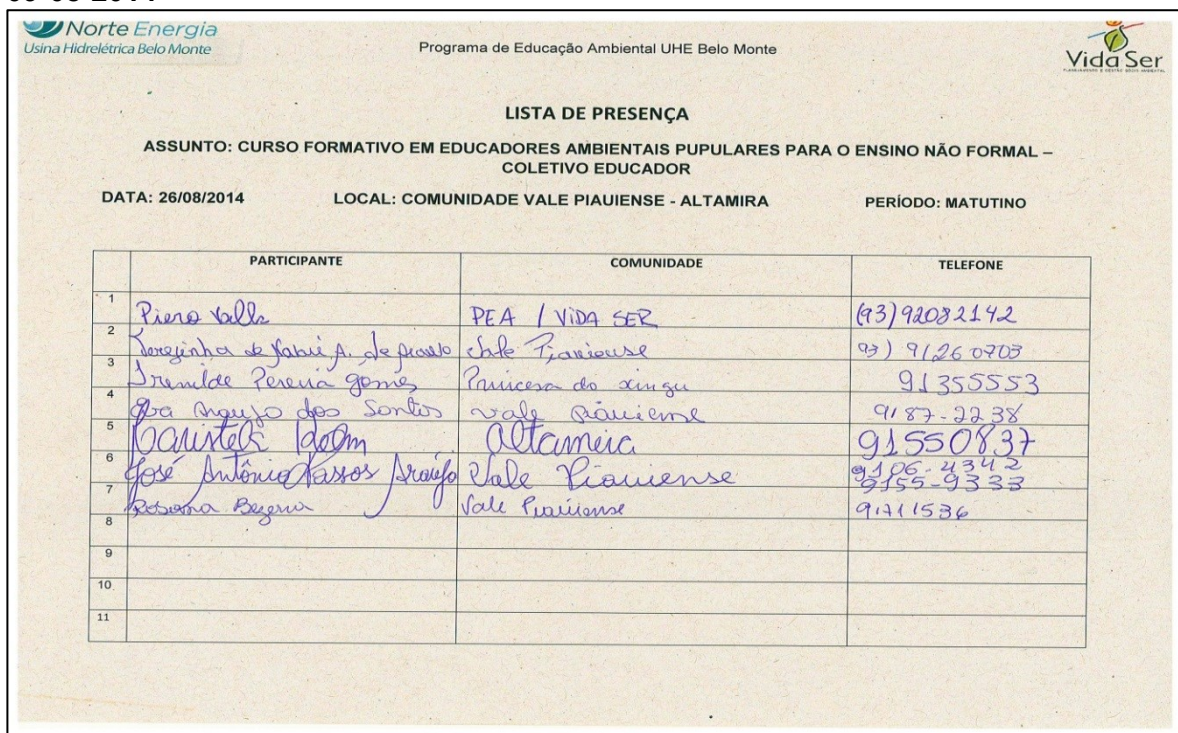 Norte Energia
Usina Hidrelétrica Belo Monte
Programa de Educação Ambiental UHE Belo Monte
Vida Ser
LISTA DE PRESENÇA
ASSUNTO: CURSO FORMATIVO EM EDUCADORES AMBIENTAIS PUPULARES PARA O ENSINO NÃO FORMAL –
COLETIVO EDUCADOR
DATA: 26/08/2014 LOCAL: COMUNIDADE VALE PIAUIENSE - ALTAMIRA PERÍODO: MATUTINO
PARTICIPANTE COMUNIDADE TELEFONE
1 Piero PEA / VIDA SER (93) 92082142
2 Terezinha de A. de Vale Piauiense 93) 91260703
3 Irenilde Pereira Gomes Princesa do xingu 91355553
4 Araujo dos Santos vale piauiense 9187-2238
5 Altamira 91550837
6 José Antônio Passos Araújo Vale Piauiense 9106-4342
9155-9333
7 Rosana Bezerra Vale Piauiense 91711536
8
9
10
11